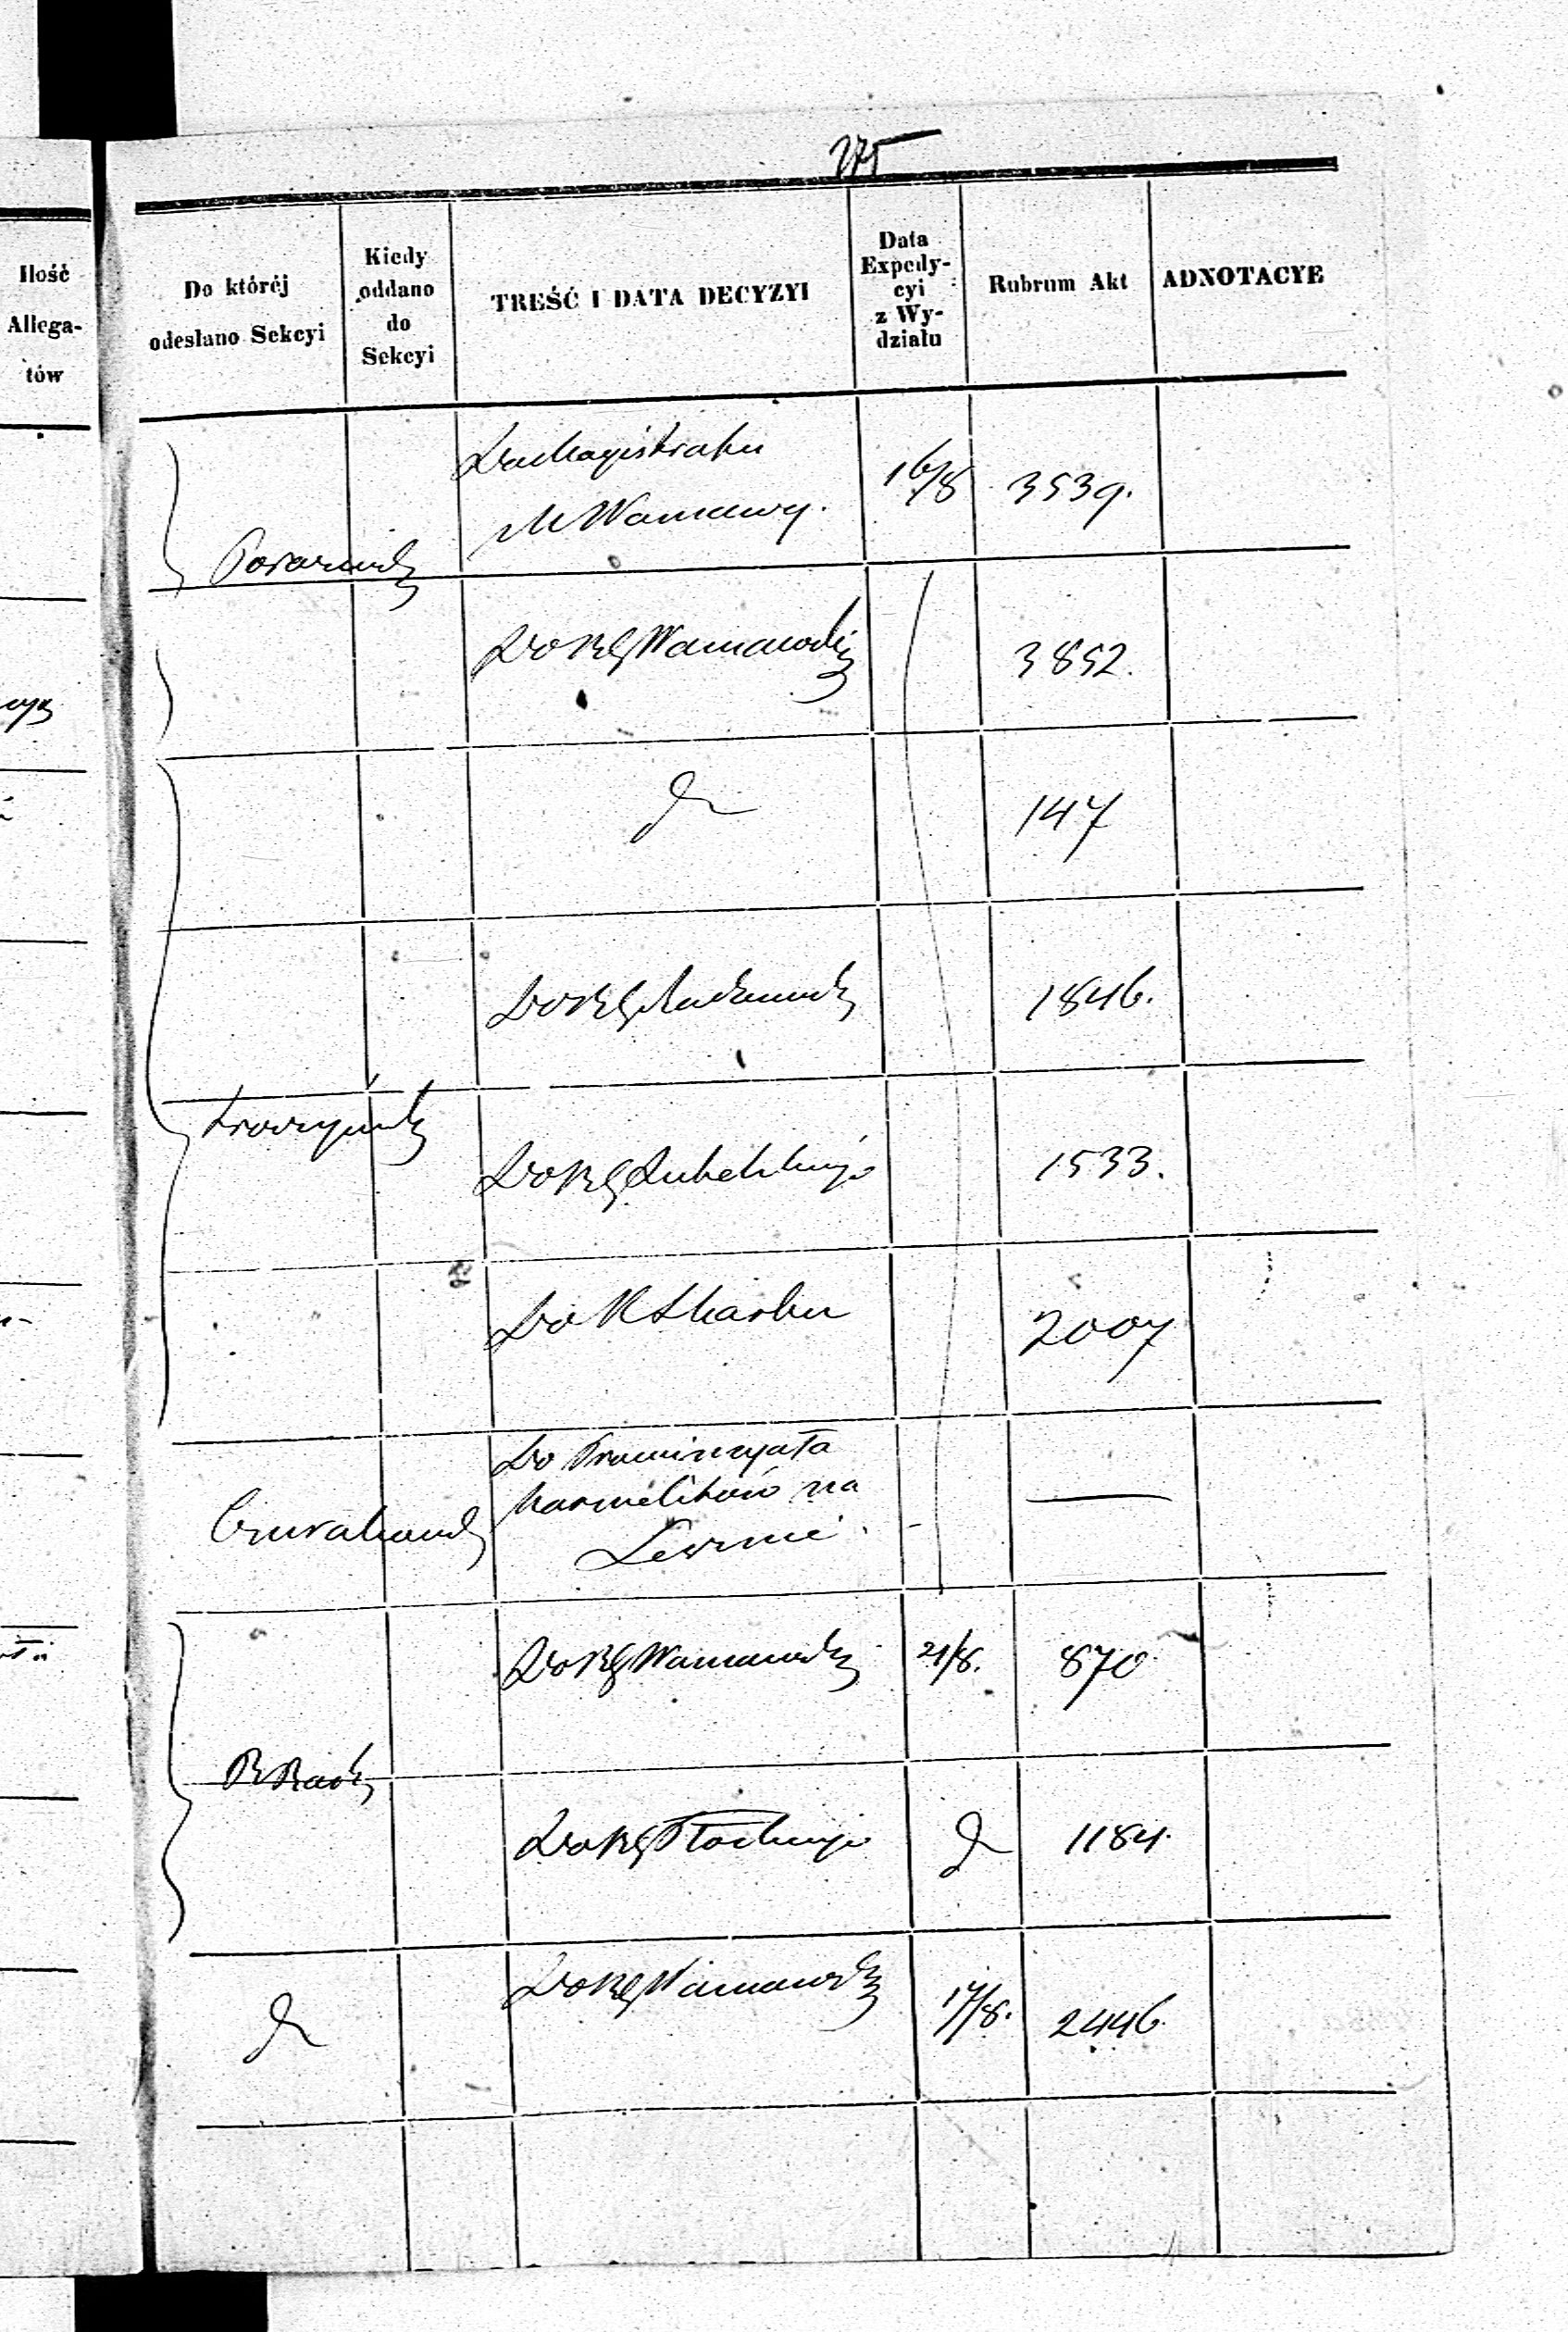 275
Ilość
Allega-
tów
Do któréj
odesłano Sekcyi
Kiedy
oddano
do
Sekcyi
TREŚĆ I DATA DECYZYI
Data
Expedy-
cyi
z Wy-
działu
Rubrum Akt
ADNOTACYE
Do Magistratu
M Warszawy.
16/8
3539.
Do RG Warszawski
3852.
147
Do RG
1846.
Do RG Lubelskiego
1533.
Do K Skarbu
2007
Do Prowincyała
Karmelitów na
Lesznie
Do RG Warszawsk
21/8.
870
Do RG Płockiego
1184.
Do RG Warszawsk
17/8.
2446.